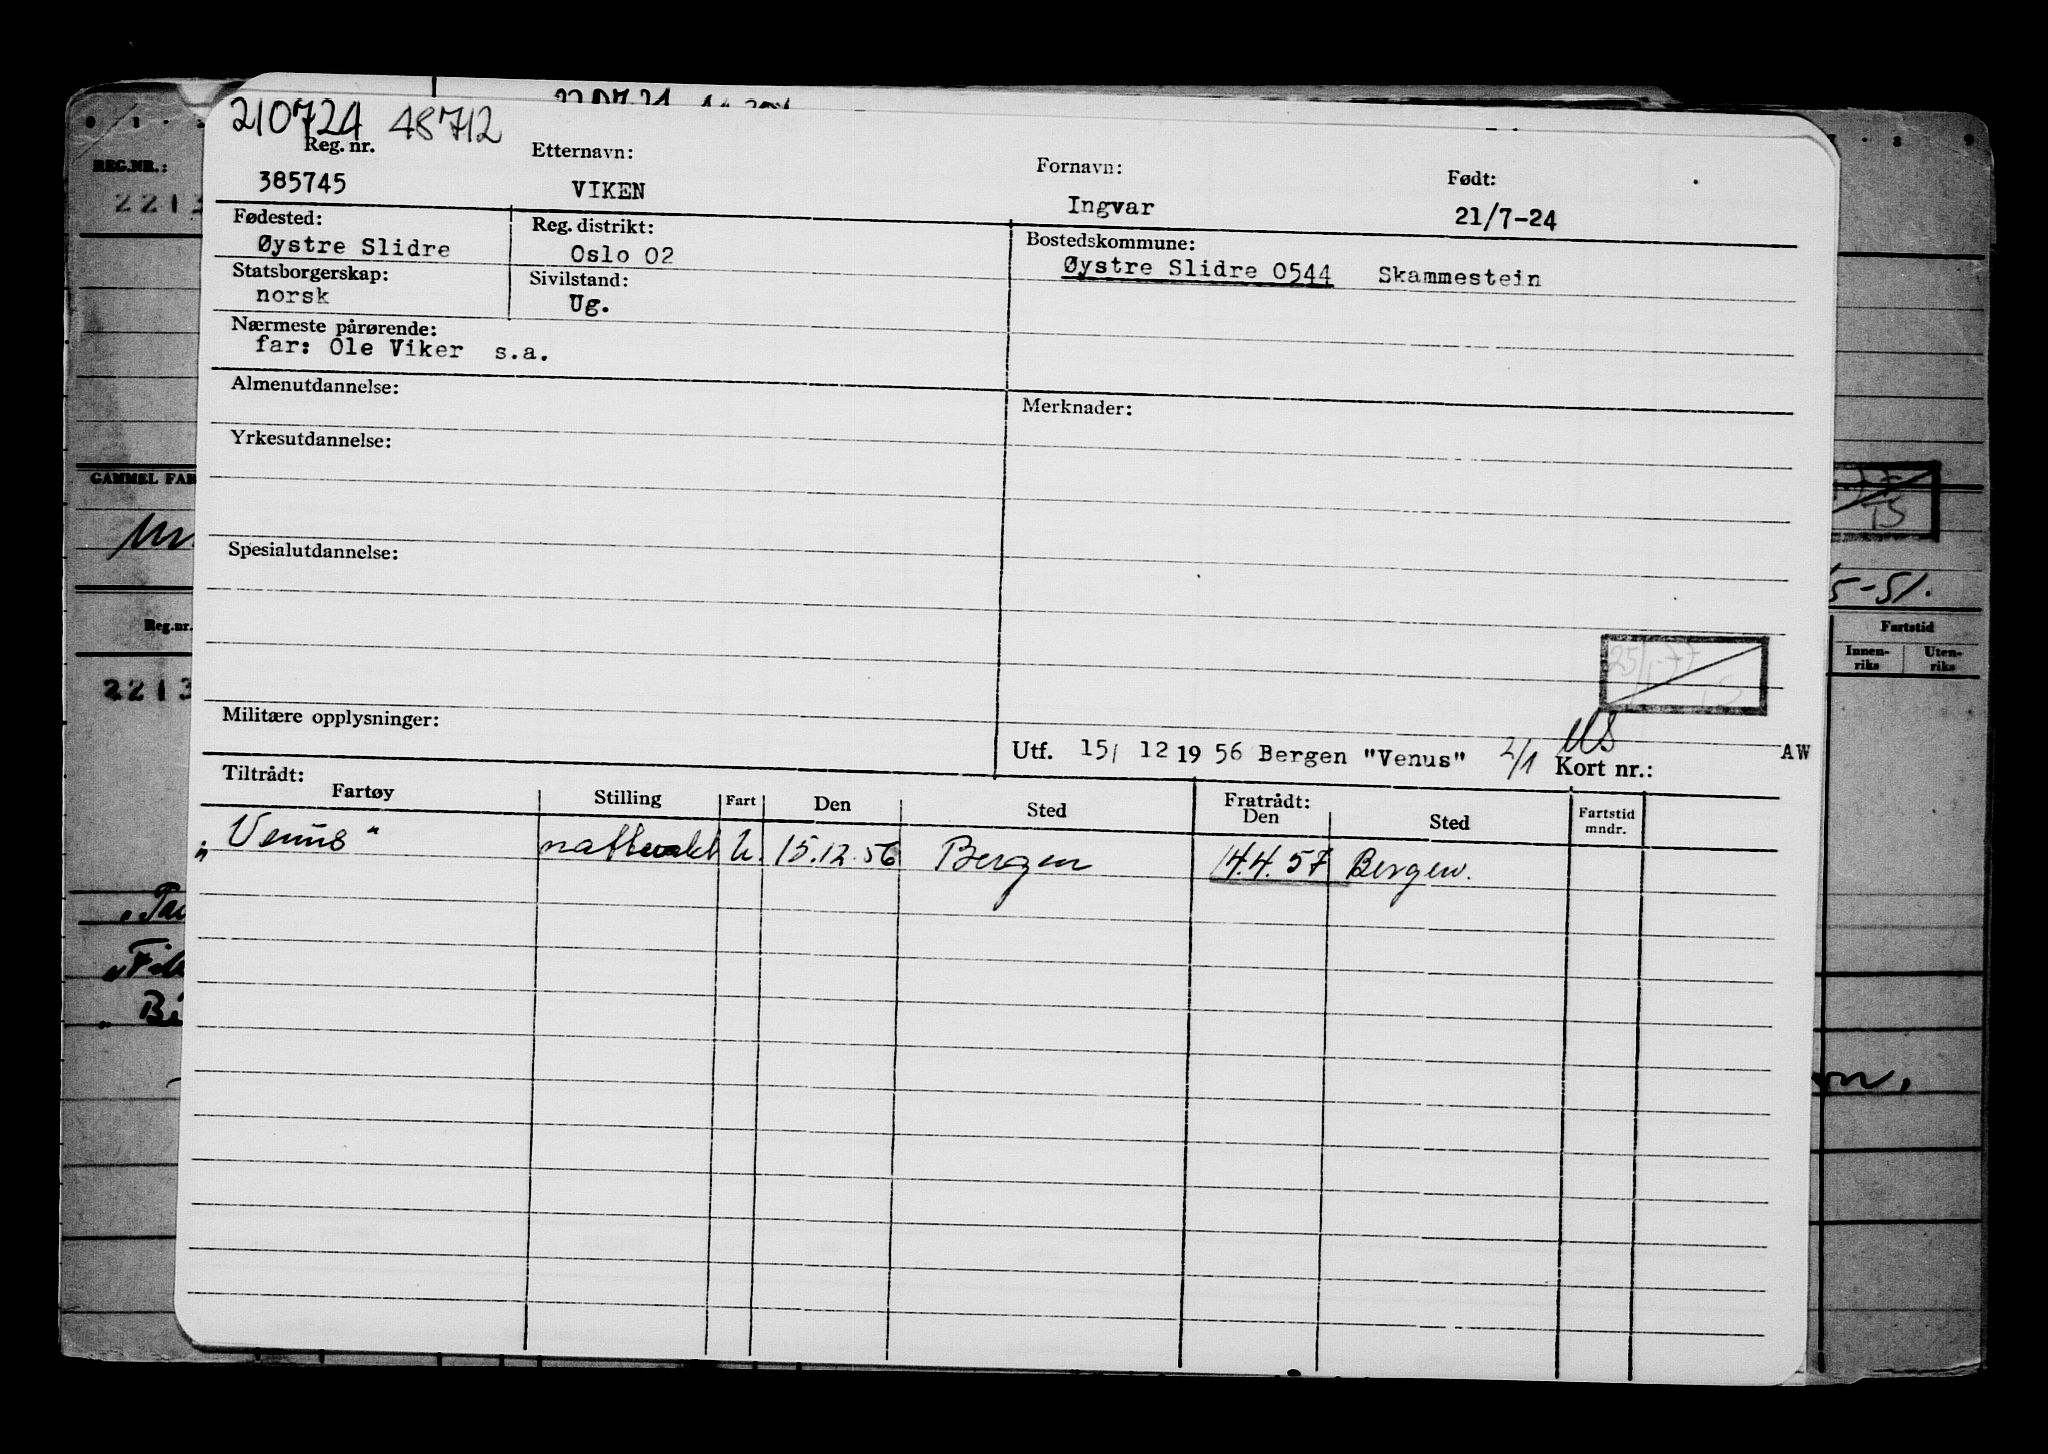 210724 48712
Reg. nr. Etternavn: Fornavn: Født:
385745 VIKEN Ingvar 21/7-24
Fødested: Reg. distrikt: Bostedskommune:
Øystre Slidre Oslo 02 Øystre Slidre 0544 Skammestein
Statsborgerskap: Sivilstand:
norsk Ug.
Nærmeste pårørende:
far: Ole Viker s.a.
Almenutdannelse:
Merknader:
Yrkesutdannelse:
Spesialutdannelse:
Militære opplysninger:
Utf. 15/ 12 19 56 Bergen "Venus" 2/1 Kort nr.: AW
Tiltrådt: Fratrådt:
Fartøy Stilling Fart Den Sted Den Sted Fartstid mndr.
"Venus" nattvakt U. 15.12.56 Bergen 14.4.57 Bergen.
REG.NR.:
2213
GAMMEL FAR
Reg.nr.
2213
5-51.
Fartstid
Innen-riks Uten-riks